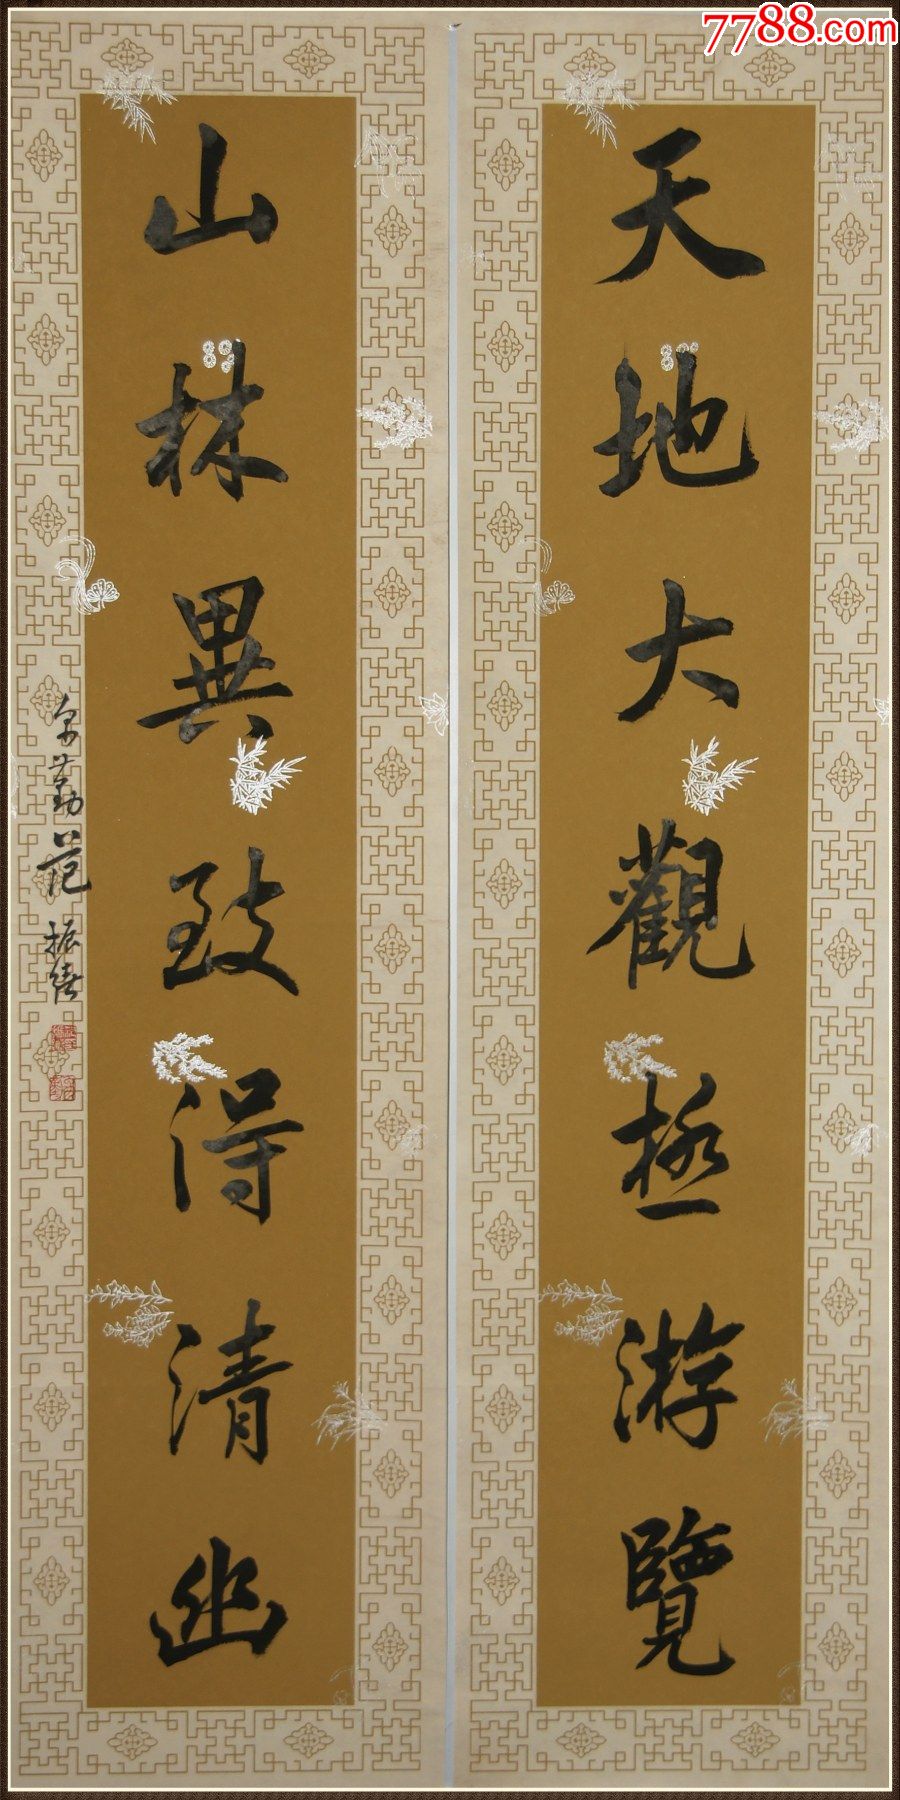 7788.com
天地大觀極游覽
山林異致得清幽
范振緒